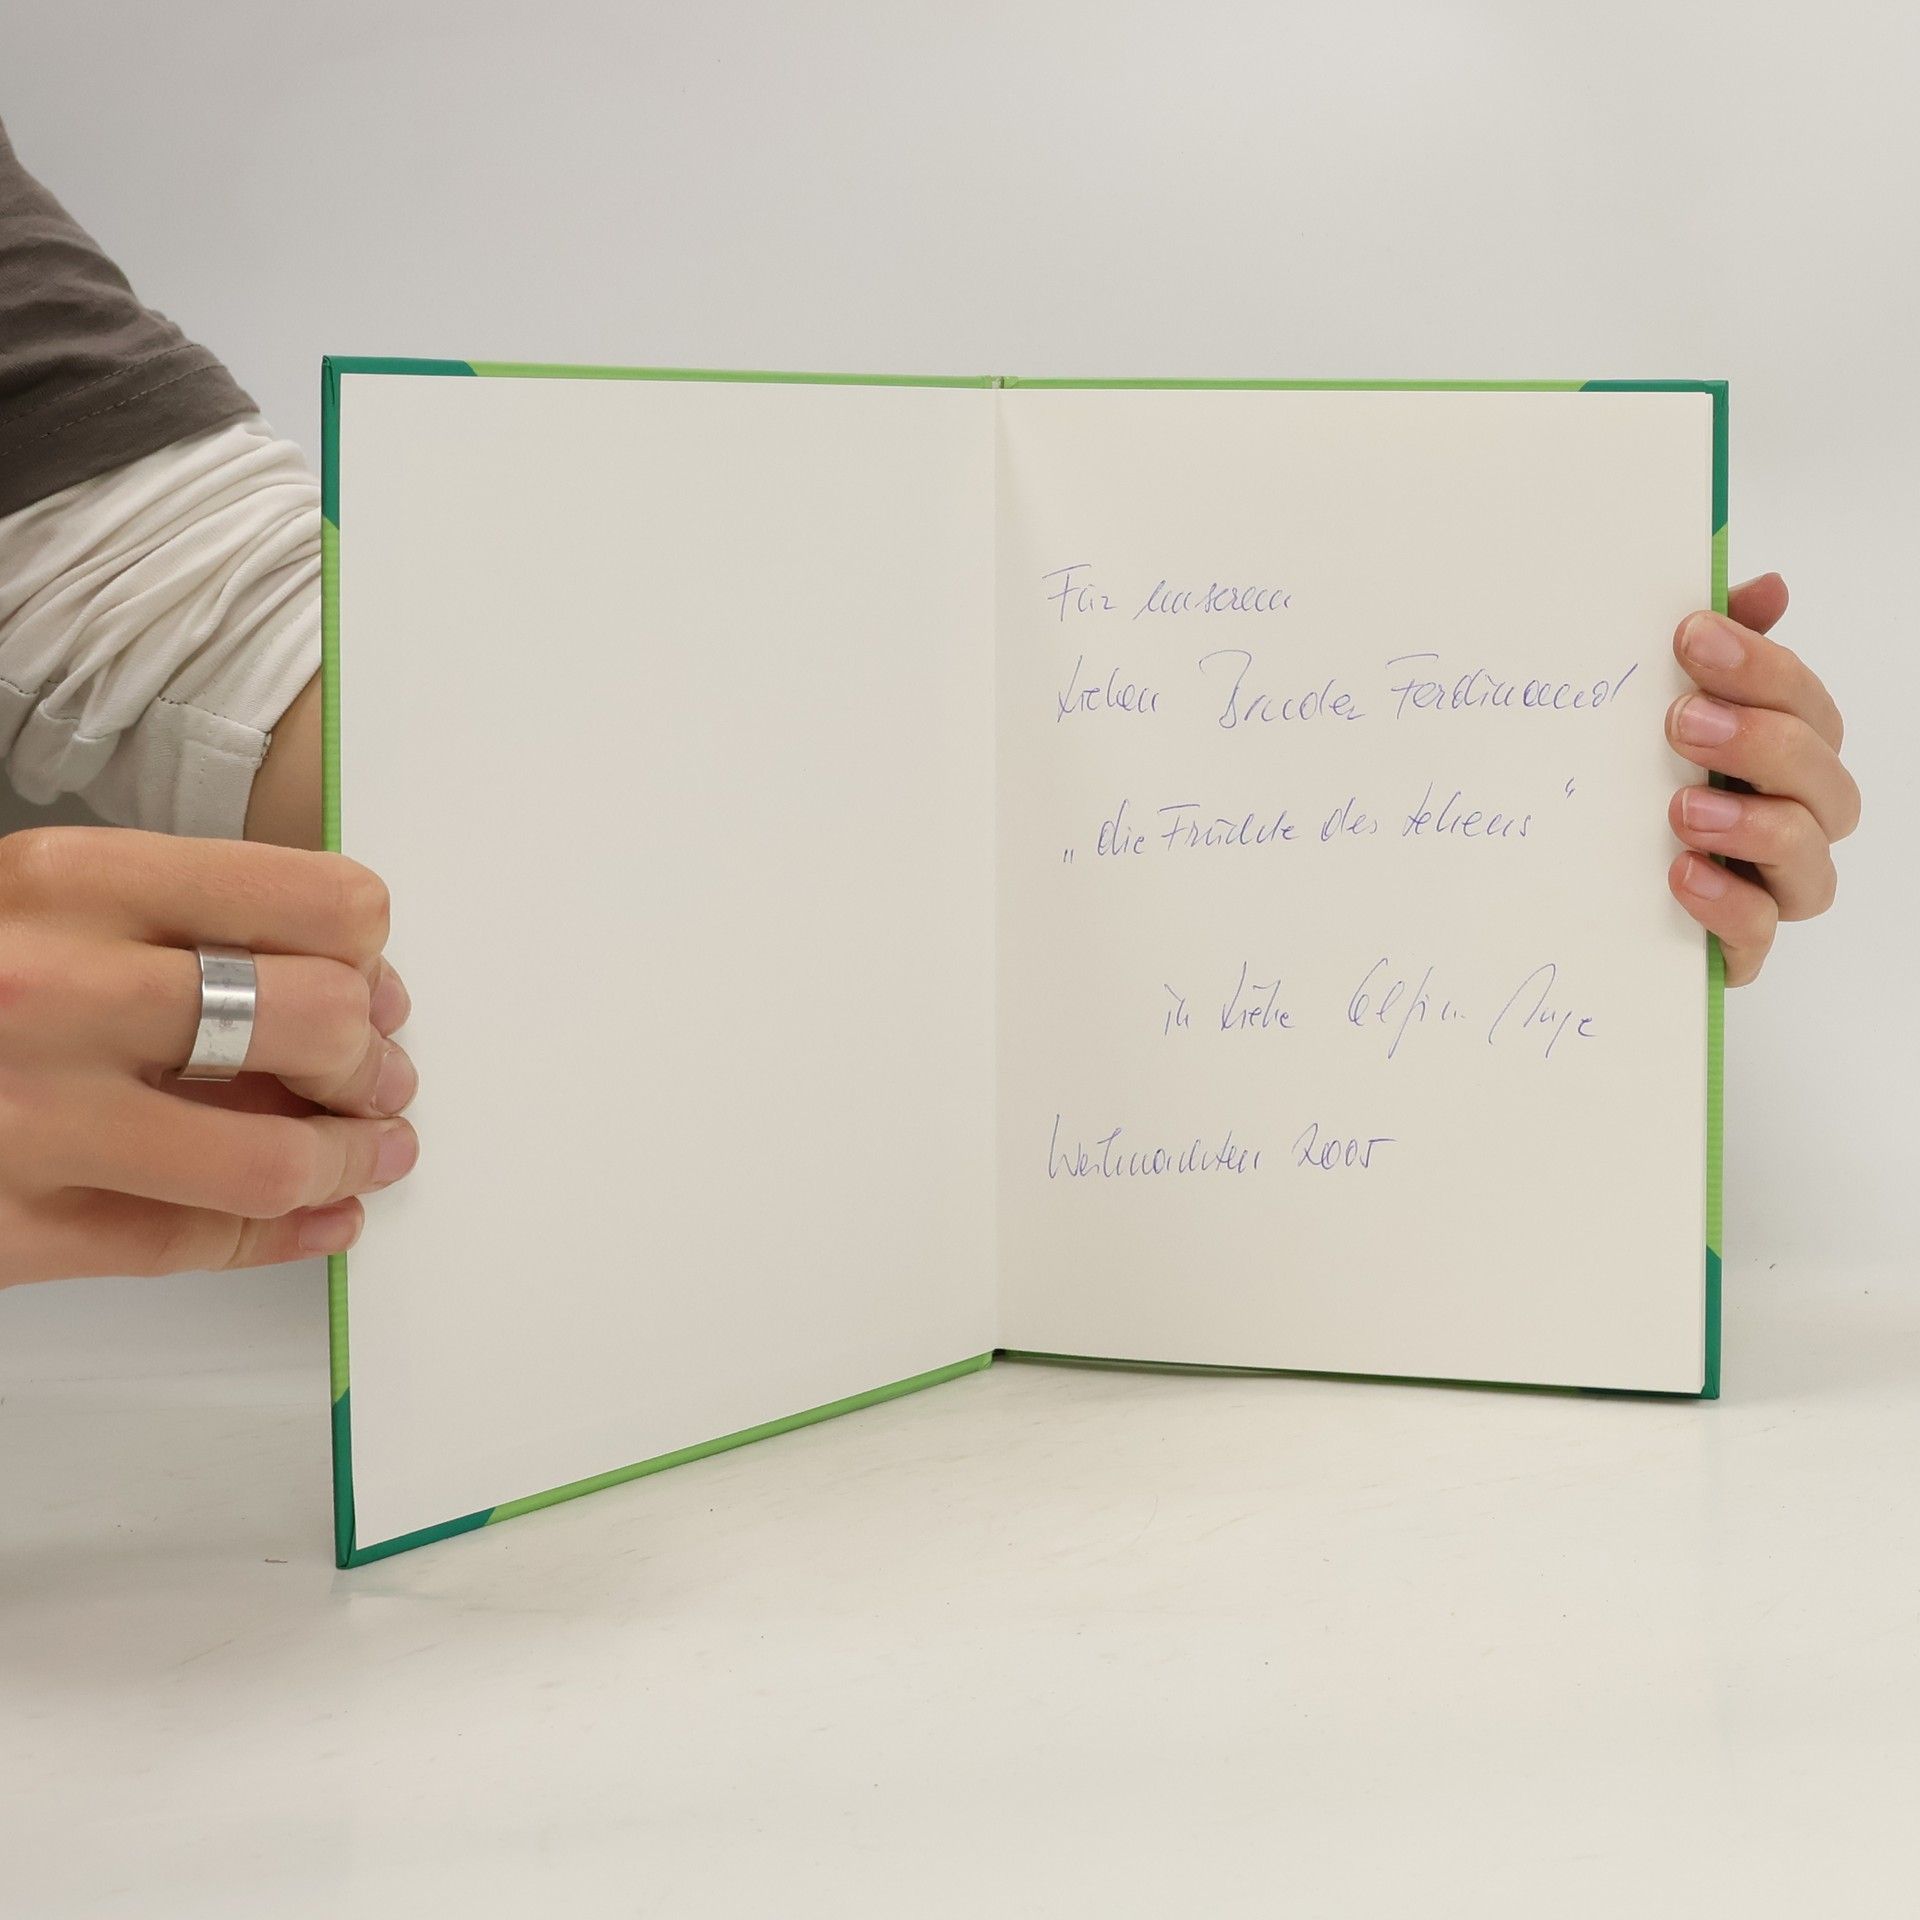 Für unseren
lieben Bruder Ferdinand
„die Früchte des Lebens“
in Liebe
Weihnachten 2005